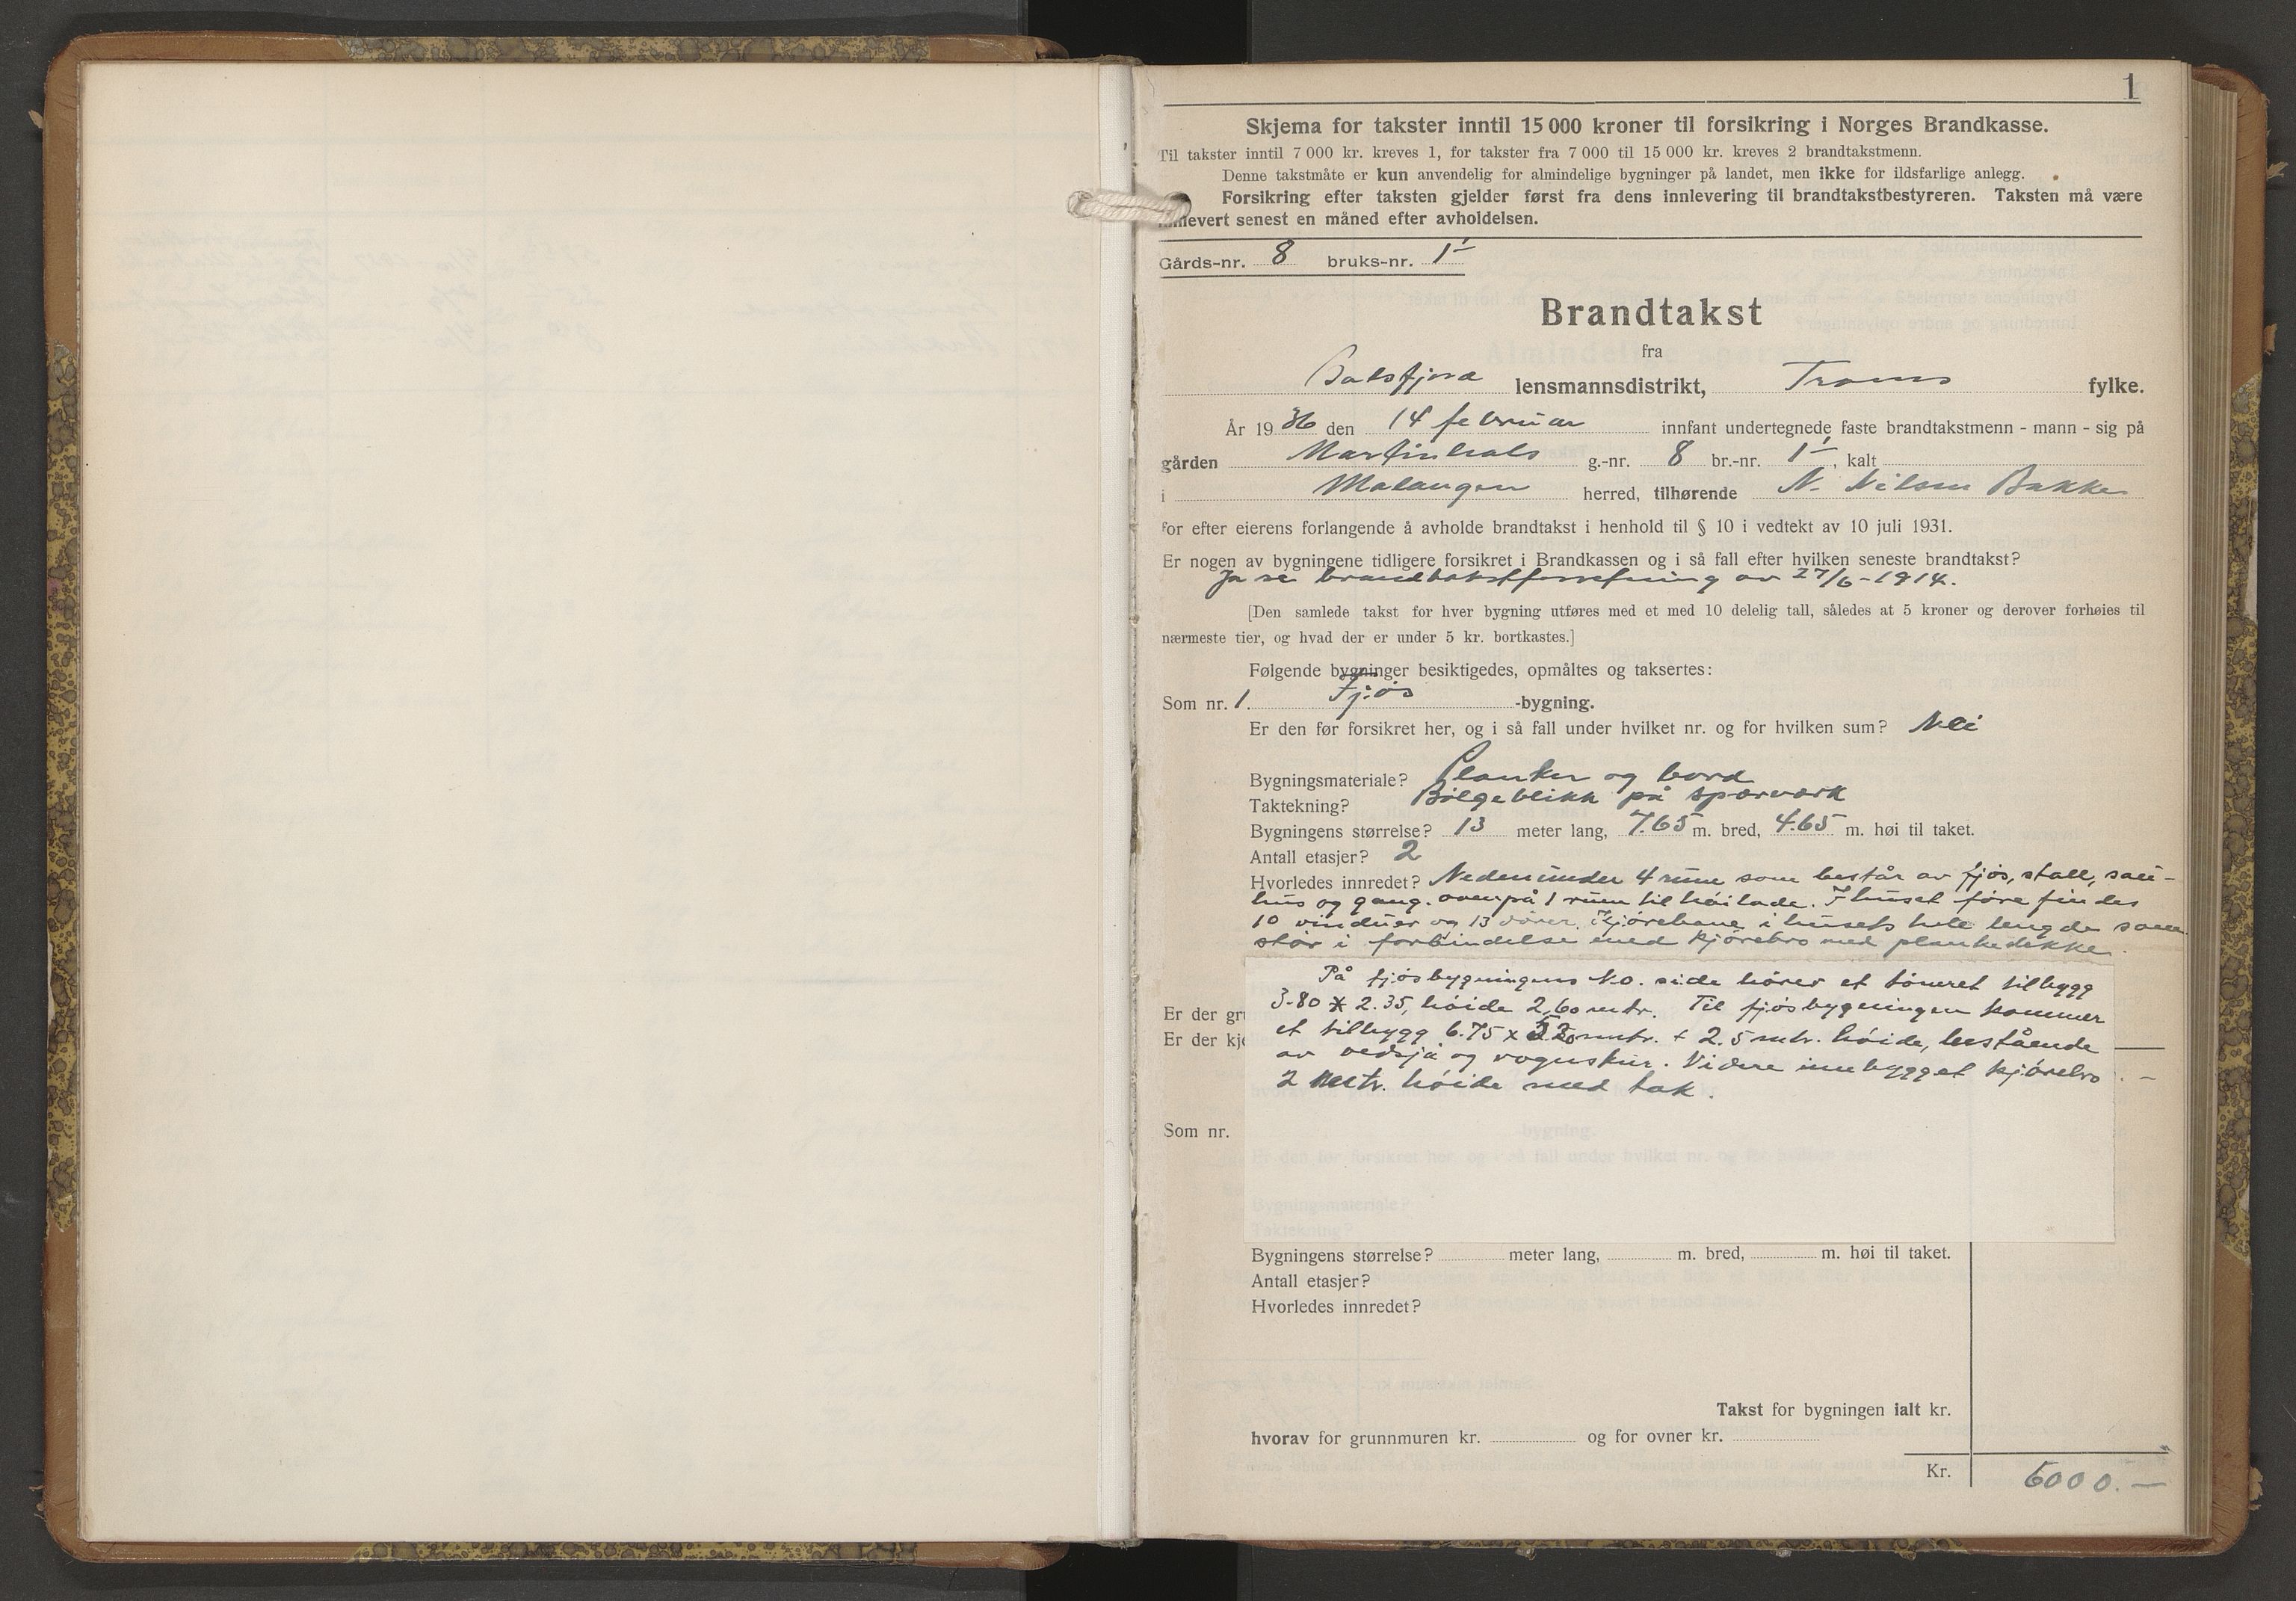 1
Skjema for takster inntil 15 000 kroner til forsikring i Norges Brandkasse.
Til takster inntil 7 000 kr. kreves 1, for takster fra 7 000 til 15 000 kr. kreves 2 brandtakstmenn.
Denne takstmåte er kun anvendelig for almindelige bygninger på landet, men ikke for ildsfarlige anlegg.
Forsikring efter taksten gjelder først fra dens innlevering til brandtakstbestyreren. Taksten må være
innlevert senest en måned efter avholdelsen.
Gårds-nr. 8 bruks-nr. 1
Brandtakst
fra
Balsfjord lensmannsdistrikt, Troms fylke.
År 1936 den 14 februar innfant undertegnede faste brandtakstmenn - mann - sig på
gården Martinhals g.-nr. 8 br.-nr. 1, kalt
i Malangen herred, tilhørende N. Nilsen Bakke
for efter eierens forlangende å avholde brandtakst i henhold til § 10 i vedtekt av 10 juli 1931.
Er nogen av bygningene tidligere forsikret i Brandkassen og i så fall efter hvilken seneste brandtakst?
Ja se brandtakstforretning av 27/6-1914.
[Den samlede takst for hver bygning utføres med et med 10 delelig tall, således at 5 kroner og derover forhøies til
nærmeste tier, og hvad der er under 5 kr. bortkastes.]
Følgende bygninger besiktigedes, opmåltes og taksertes:
Som nr. 1. Fjøs -bygning.
Er den før forsikret her, og i så fall under hvilket nr. og for hvilken sum? Nei
Bygningsmateriale? Planker og bord
Taktekning? Bølgeblikk på sperverk
Bygningens størrelse? 13 meter lang, 7.65 m. bred, 4.65 m. høi til taket.
Antall etasjer? 2
Hvorledes innredet? Nedenunder 4 rum som består av fjøs, stall, sau-
hus og gang. ovenpå 1 rum til høilade. I huset føre findes
10 vinduer og 13 dører. Kjørebane i husets hele lengde som
står i forbindelse med kjørebro med plankedekke.
På fjøsbygningens N.O. side hører et tømret tilbygg
3-80 x 2.35, høide 2,60 mtr. Til fjøsbygningen kommer
et tilbygg 6.75 x mtr. + 2.5 mtr. høide, bestående
av vedsjå og vognskur. Videre innebygget kjørebro
2 mtr. høide med tak.
Er der gru
Er der kje
Som nr.
Bygningens størrelse? meter lang, m. bred, m. høi til taket.
Antall etasjer?
Hvorledes innredet?
Takst for bygningen ialt kr.
hvorav for grunnmuren kr. og for ovner kr.
Kr. 6000.—